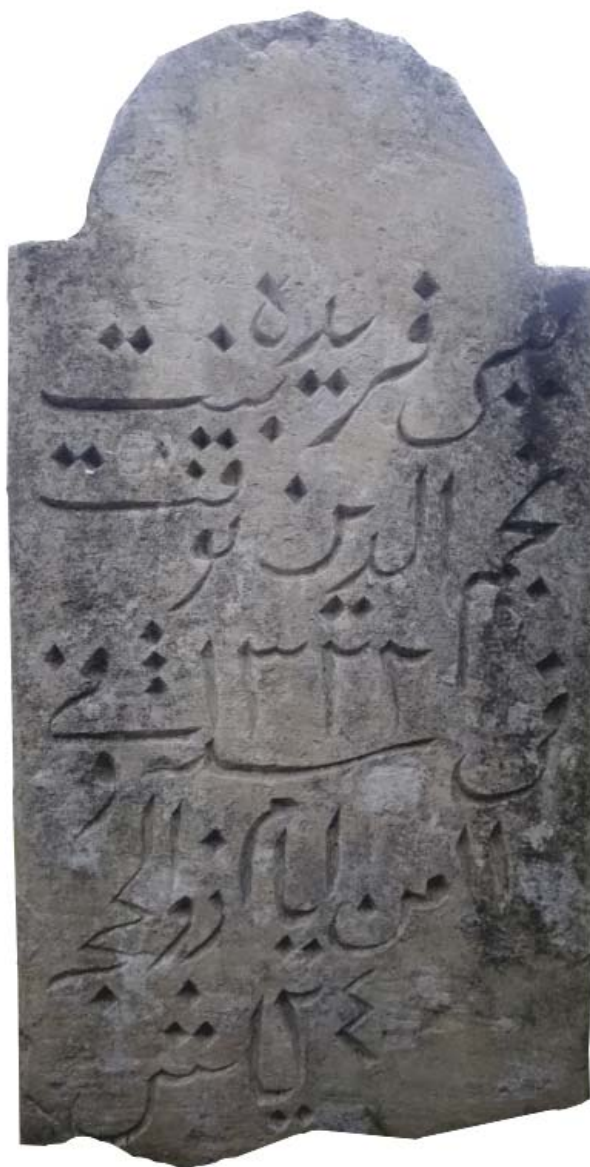 بيبى فريدة بنت
نجم الدين توفت
فى سنة ١٣٢٢ وفى
١١ من ايام ذوالحجه
٢٤ ياش